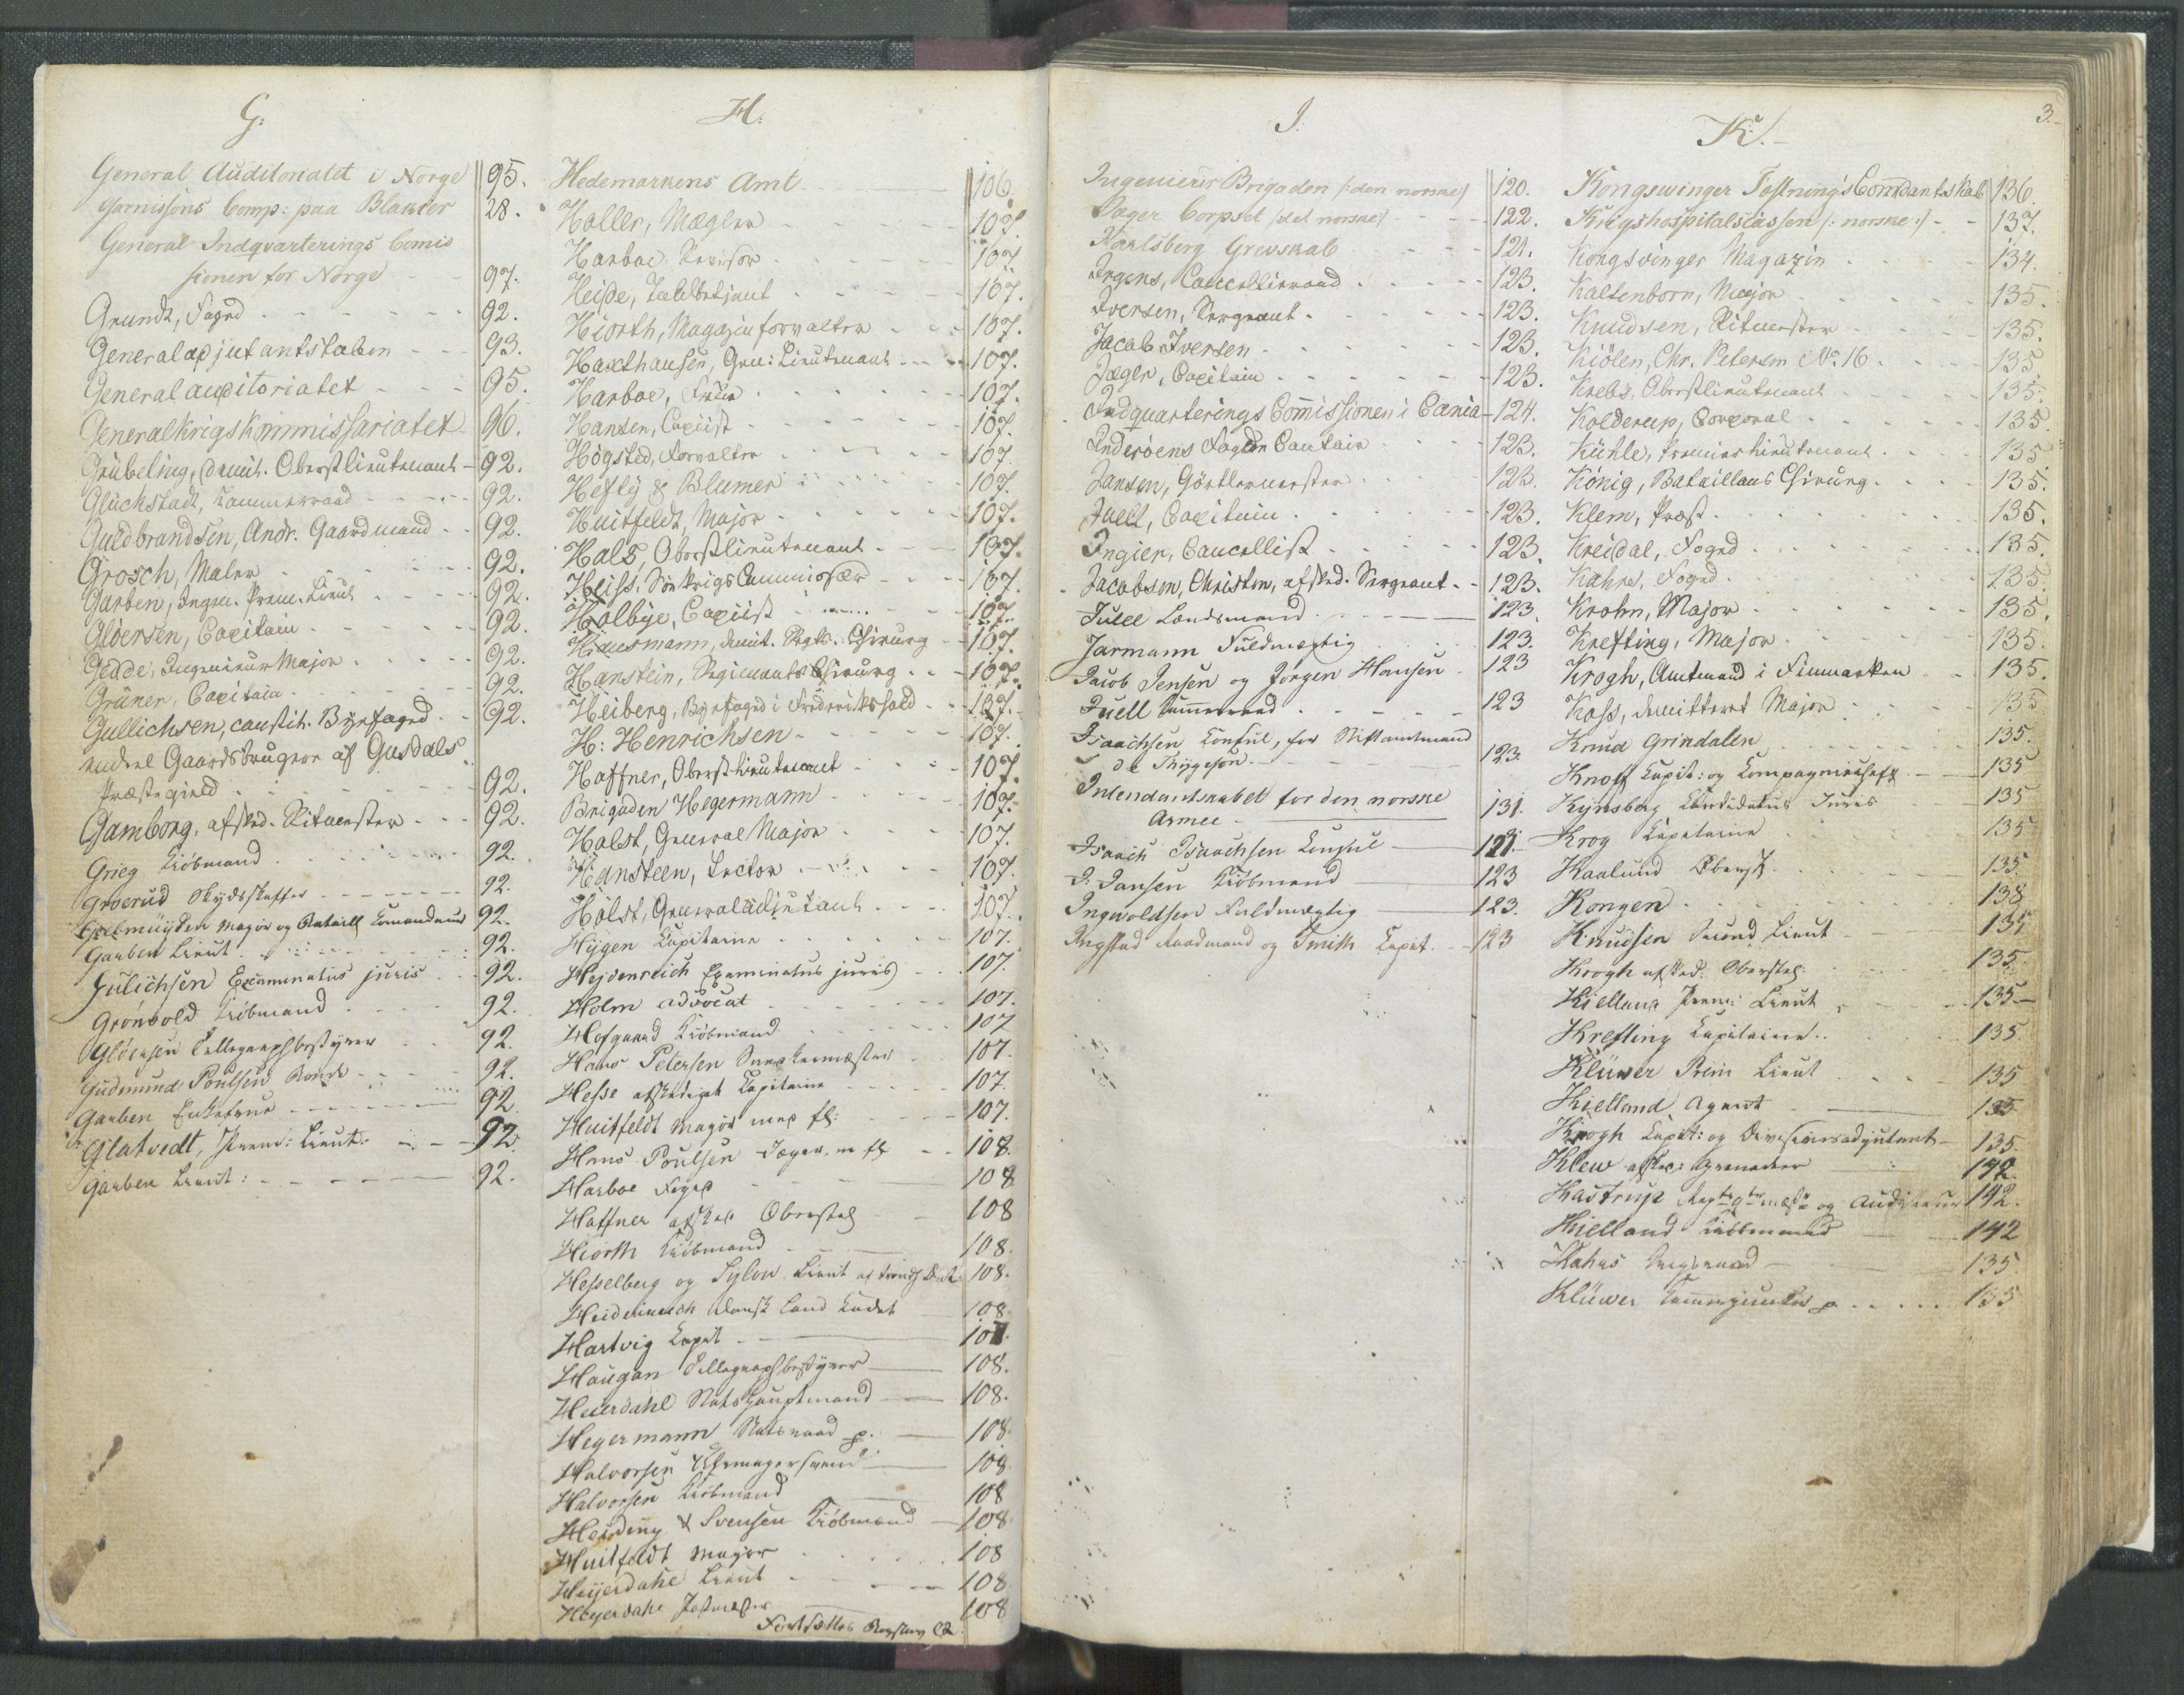 G:
General Auditoriatet i Norge 95.
Garnisons Comp: paa Blaker 28.
General Indqvarterings Comis
sionen for Norge 97.
Grundt, Foged 92.
Generaladjutantstaben 93.
Generalauditoriatet 95.
Generalkrigskommissariatet 96.
Grübeling, demit. Oberstlieutenant 92.
Glückstadt, Kammerraad 92.
Guldbrandsen, Andr. Gaardmand 92.
Grosch, Maler 92.
Garben, Ingen. Prem. Lieut 92.
Gløersen, Capitain 92.
Gedde, Ingenieur Major 92.
Grüner, Capitain 92.
Gullichsen, constit. Byefoged 92.
endeel Gaardsbrugere af Gusdals
Præstegield 92.
Gamborg, afsked. Ritmester 92.
Grieg Kiøbmand 92.
Groerud Skydsskaffer 92.
Major og Bataill Comandeur 92.
Garben Lieut 92.
Julichsen Examinatus juris 92.
Grönvold Kiøbmand 92.
Gløersen Tellegraphbestyrer 92.
Gudmund Poulsen Bonde 92.
Garben Enkefrue 92
Glatvedt, Prem: Lieut: 92.
Garben Lieut: 92.
H:
Hedemarkens Amt 106.
Haller, Mægler 107.
Harboe, Revisor 107
Heide, Toldbetjent 107.
Hiorth, Magazinforvalter 107.
Haxthausen, Gen: Lieutenant 107.
Harboe, Frue 107.
Hansen, Copiist 107.
Høgsted, Forvalter 107.
Hefty & Blumer 107.
Huitfeldt, Major 107.
Hals, Oberstlieutenant 107.
Heiss, Sø krigs Commissær 107.
Holbye, Copiist 107.
demit. Rgts. Chirurg 107.
Hanstein, Regiments Chirurg 107.
Heiberg, Byefoged i Frederikshald 107.
H: Henrichsen 107.
Haffner, Oberstlieutenant 107
Brigaden Hegermann 107.
Holst, General Major 107.
Hansteen, Lector 107.
Holst, Generaladjutant 107.
Hygen Capitaine 107.
Heidenreich Examinatus juris 107.
Holm advocat 107.
Hofgaard Kiøbmand 107
Hans Petersen 107.
Hesse afskediget Capitaine 107.
Huitfeldt Major med fl: 107.
Hans Poulsen Jæger m fl 108.
Harboe Foged 108
Haffner afsked Oberstel 108
Hiorth Kiøbmand 108.
Hesselberg og Sylow Lieut 108.
Heidenreich dansk Land Cadet 108
Hartvig Capit 108.
Haugan Tellegraphbestyrer 108.
Heierdahl Stats Hauptmand 108.
Hegermann Statsraad p. 108.
Halvorsen Uhrmagersvend 108
Halvorsen Kiøbmand 108
Heiding & Svensen Kiøbmænd 108
Huitfeldt Major 108
Heyerdahl Lieut 108
Heyerdahl Postmester 108
Fortsættes
I.
Ingenieur Brigaden (: den norske) 120.
Jæger Corpset (det norske) 122.
Karlsberg Grevskab 121.
Irgens, Cancelliraad 123.
Iversen, Sergeant 123.
Jacob Iversen 123.
Jæger, Capitain 123.
Indquarterings Commissionen i Cania 124.
Inderøens Fogden Cantain 123.
Jansen, Gørtlermester 123.
Juell, Capitain 123.
Ingier, Cancellist 123.
Jacobsen, Christen, afsked. Sergeant 123.
Juell Landsmand 123.
Jarmann Fuldmægtig 123.
Jacob Jensen og Jørgen Hansen 123
Juell Kammerraad 123
Isaachsen Konsul, for Stiftamtmand
de Thygeson 123.
Intendantskabet for den norske
Armee 131.
Isaach Isaachsen Konsul 121.
I: Jansen Kiøbmand 123
Ingwoldsen Fuldmægtig 123.
Ingstad Raadmand og Smith Capit. 123
K.
3.
Kongswinger Fæstnings Comdantskab 136.
Krigshospitalskassen (: norske :) 137.
Kongsvinger Magazin 134.
Kaltenborn, Major 135.
Knudsen, Ritmester 135.
Kiölen, Chr. Petersen No. 16 135.
Krebs, Oberstlieutenant 135.
Kolderup, Corporal 135.
Kühle, Premierlieutenant 135.
König, Bataillons Chirurg 135.
Klem, Præst 135.
Kreidal, Foged 135.
Kahrs, Foged 135.
Krohn, Major 135.
Krefting, Major 135.
Krogh, Amtmand i Finmarken 135.
Koss, demitteret Major 135
Knud Grindalen 135.
Knoff Capit: og Compagniechef 135
Kynsberg Candidatus Juris 135
Krog Capitaine 135
Kaalund Oberst 135.
Kongen 138
Knudsen Second Lieut 135
Krogh afsked: Oberstel: 135.
Kielland Prem: Lieut 135
Krefting Capitaine 135
Klüwer Prem Lieut 135
Kielland Agent 135
Krogh Capit: og Divisionsadjutant 135.
Klew afsked: Grenadeer 142.
Kastrup og Auditeur 142.
Kielland Kiøbmand 142
Kahrs 135
Klüwer Kammerjunker p 135